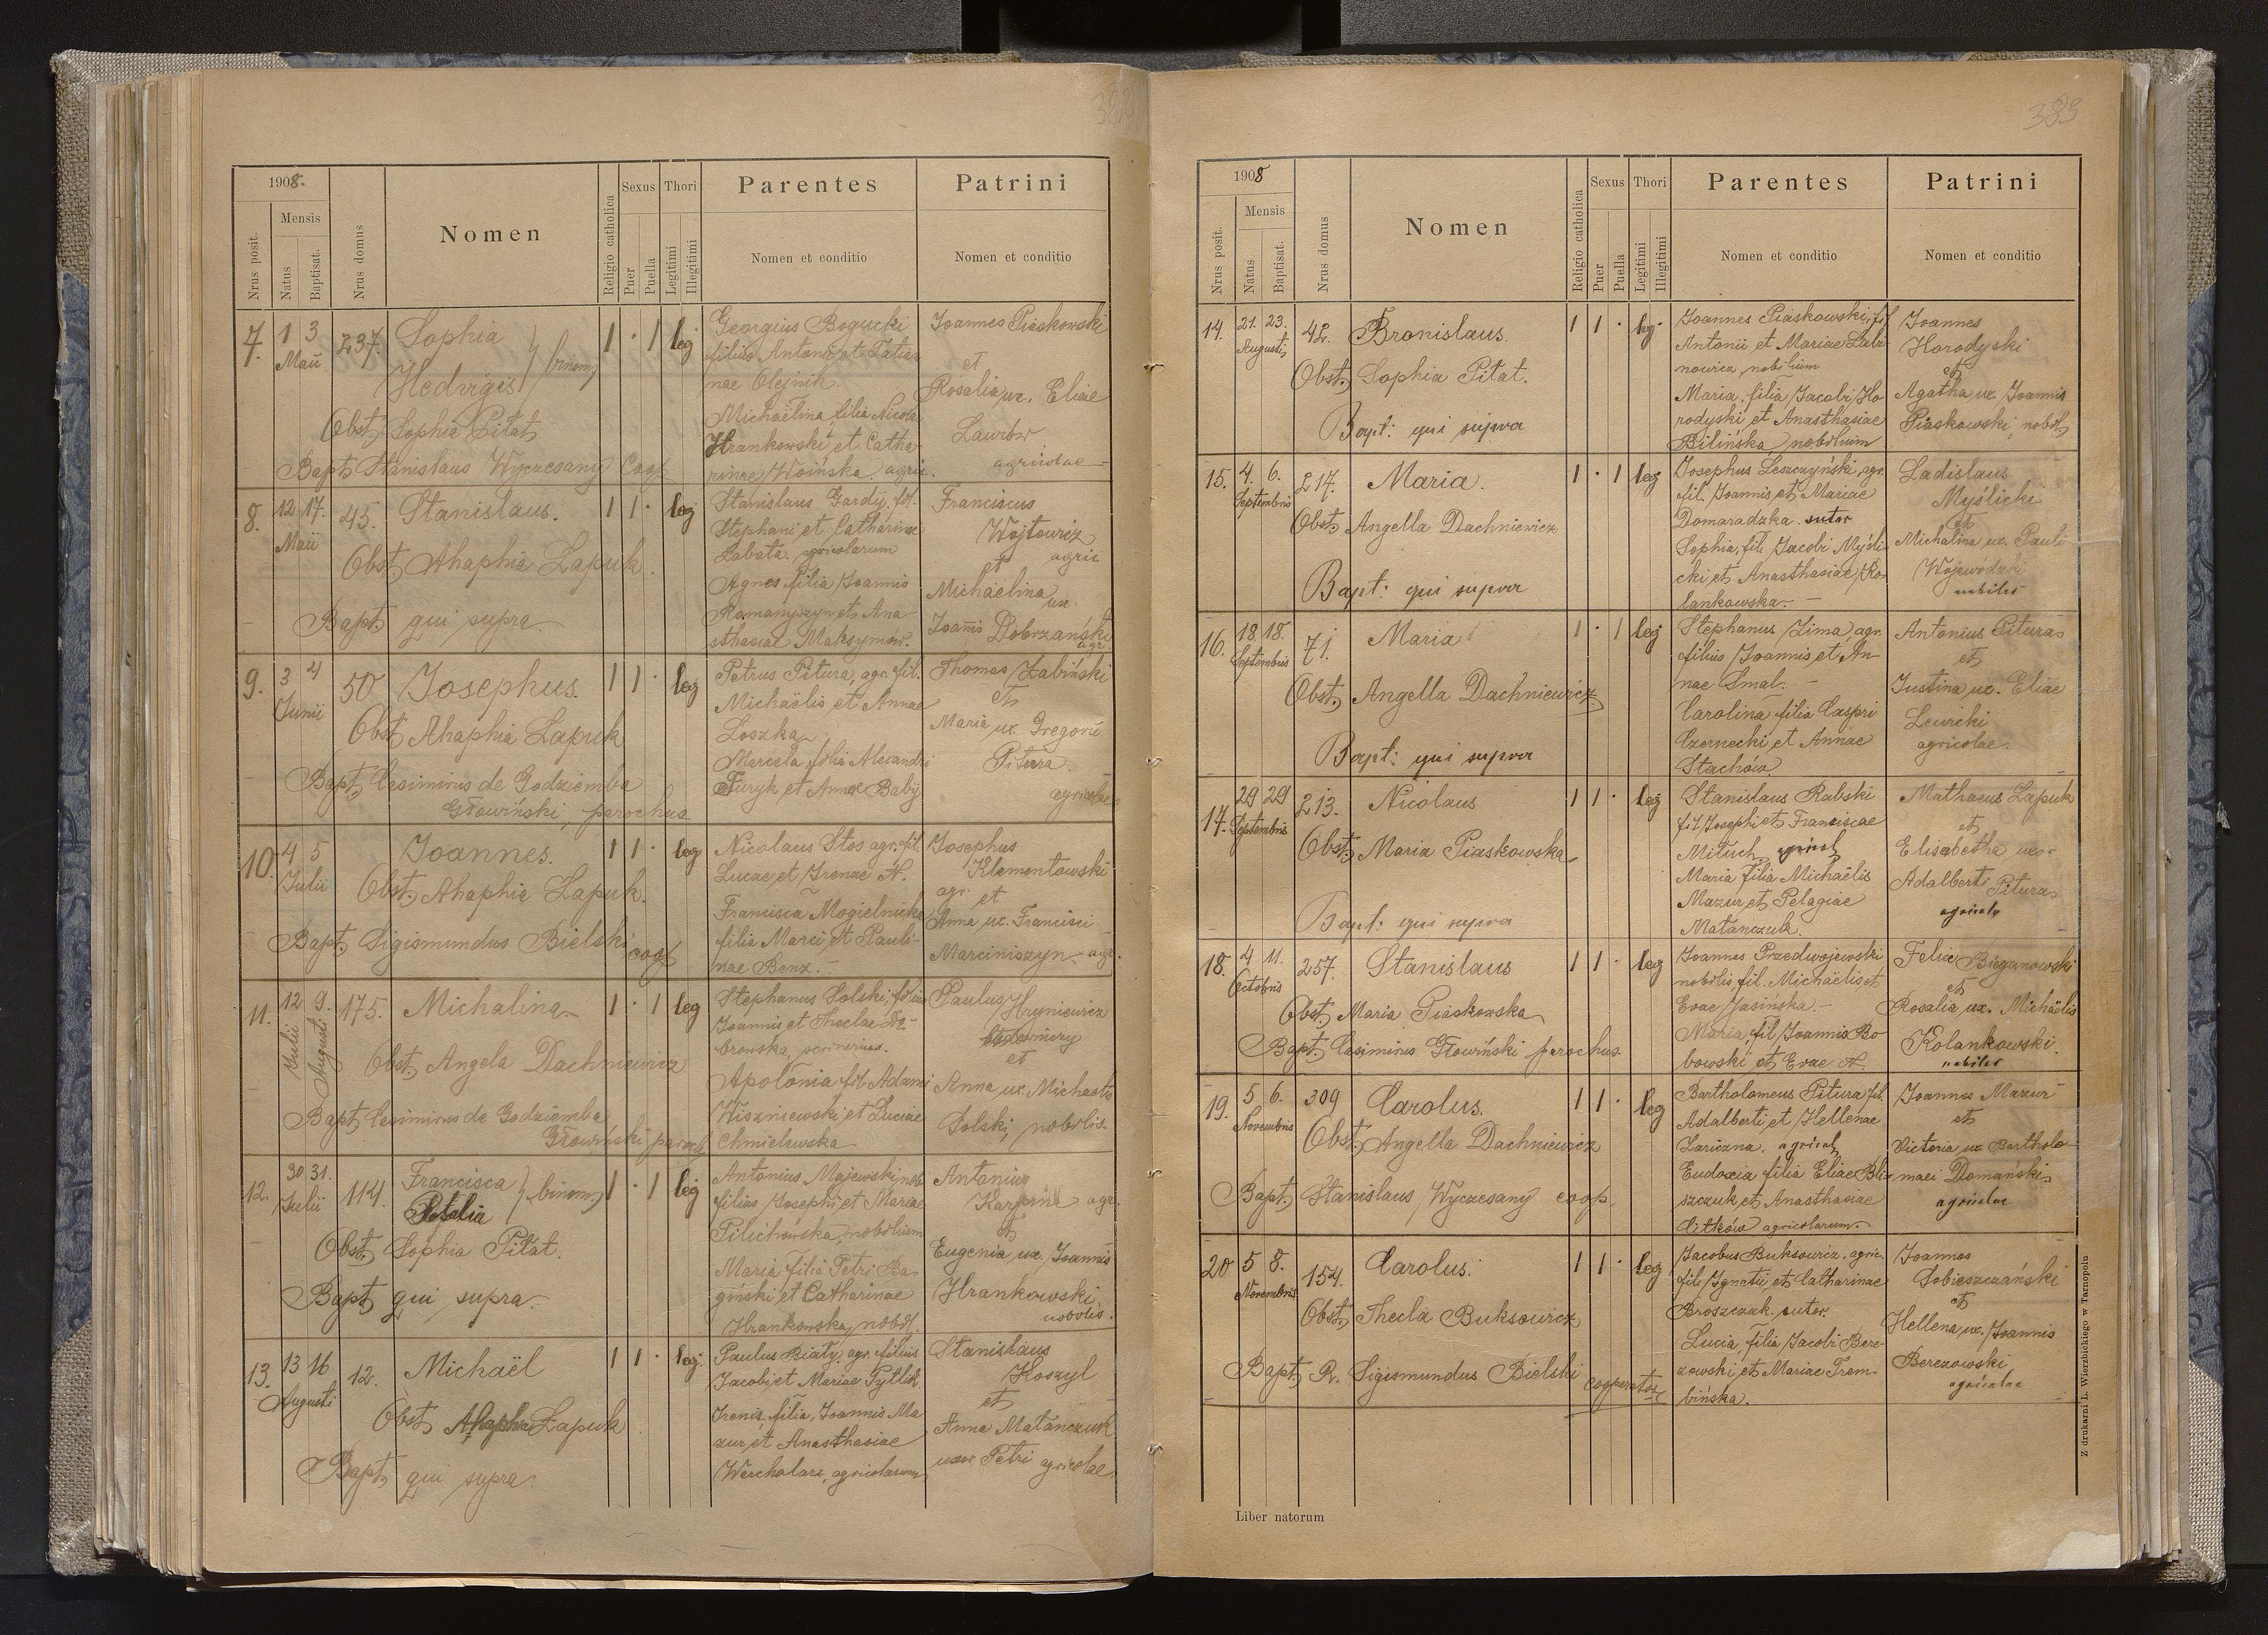 382
1908.
Nrus posit.
Mensis
Natus
Baptisat.
Nrus domus
Nomen
Religio catholica
Sexus
Puer
Puella
Thori
Legitimi
Illegitimi
Parentes
Nomen et conditio
Patrini
Nomen et conditio
7. 1 3 Maii 237. Sophia
Hedviges } binom,
Obst, Sophia Pitat
Bapt, Stanislaus Wyczesany Coop
1 · 1 leg
Georgius Bogucki
filius Antonii et Tatia-
nae Olejnik.
Michaëlina filia Nicolai
Hrankowski et Catha
rinae Woińska agric.
Joannes Piaskowski
et
Rosalia ux. Eliae
Laurów
agricolae
8. 12 17. Maii 45. Stanislaus.
Obst, Ahaphia Łapuk.
Bapt, qui supra
1 1 · leg
Stanislaus Gardij, fil.
Stephani et Catharinae
Łabata. agricolarum
Agnes filia Joannis
Romanyszyn et Ana-
sthasiae Maksymow.
Franciscus
Wojtowicz
agric
et
Michaëlina
ux.
Joannis Dobrzański
agr.
9. 3 4 Junii 50 Josephus.
Obst, Ahaphia Łapuk
Bapt, Casimirus de Godziemba
Głowiński, parochus
1 1 · leg
Petrus Pitura, agr. fil.
Michaëlis et Annae
Loszka
Marcela filia Alexandri
Furyk et Annae Babij
Thomas Żabiński
et
Maria ux. Gregorii
Pitura
agricolae
10. 4 5 Julii Joannes.
Obst, Ahaphia Łapuk.
Bapt, Sigismundus Bielski coop
1 1 · leg
Nicolaus Stos agr. fil.
Lucae et Irenae N.
Francisca Mogielnicka
filia Marci et Pauli-
nae Benz.-
Josephus
Klementowski
agr. et
Anna ux. Francisci
Marciniszyn agr.
11. 12 Julii 9. Augusti 175. Michalina
Obst, Angela Dachniewicz
Bapt, Casimirus de Godziemba
Głowiński paroch
1 · 1 leg
Stephanus Solski, filius
Joannis et Theclae Do-
browska,
Apolonia fil. Adami
Wiszniewski et Luciae
Chmielewska
Paulus Hryniewicz
et
Anna ux. Michaelis
Solski, nobilis.
12. 30 31. Julii 114. Francisca
Rosalia } binom,
Obst, Sophia Pitat.
Bapt, qui supra.
1 · 1 leg
Antonius Majewski nob
filius Josephi et Mariae
Pilichowska, nobilium
Maria filia Petri Ba-
giński et Catharinae
Hrankowska, nobil.
Antonius
Karpin agr.
et
Eugenia ux. Joannis
Hrankowski
nobilis.
13. 13 16 Augusti 12. Michaël
Obst, Ahaphia Łapuk
Bapt, qui supra.
1 1 · leg.
Paulus Biały agr. filius
Jacobi et Mariae Pytlik
Irenis, filia, Joannis Ma
zur et Anasthasiae
Wercholaz, agricolarum
Stanislaus
Koszyl
et
Anna Matanczuk
uxor Petri agricolae
383
1908
Nrus posit.
Mensis
Natus
Baptisat.
Nrus domus
Nomen
Religio catholica
Sexus
Puer
Puella
Thori
Legitimi
Illegitimi
Parentes
Nomen et conditio
Patrini
Nomen et conditio
14. 21. 23. Augusti 42. Bronislaus.
Obst, Sophia Pitat.
Bapt: qui supra
1 1 · leg.
Joannes Piaskowski, fil
Antonii et Mariae Łabi-
nowicz, nobilium
Maria, filia Jacobi Ho
rodyski et Anasthasiae
Bilińska, nobilium
Joannes
Horodyski
et
Agatha ux. Joannis
Piaskowski, nobil,
15. 4. 6. Septembris 217. Maria.
Obst, Angella Dachniewicz
Bapt: qui supra
1 · 1 leg
Josephus Leszczyński, agr.
fil. Joannis et Mariae
Domaradzka. sutor
Sophia, fil. Jacobi Myśli-
cki et Anasthasiae Ko-
lankowska.-
Ladislaus
Myślicki
et
Michalina ux. Pauli
Wojewodzki
nobiles
16. 18. 18. Septembris 71. Maria
Obst, Angella Dachniewicz
Bapt: qui supra
1 · 1 leg
Stephanus Zima, agr.
filius Joannis et An-
nae Smal.-
Carolina filia Caspri
Czernecki et Annae
Stachów.
Antonius Pitura
et
Justina ux. Eliae
Lewicki
agricolae.
17. 29 29 Septembris 213. Nicolaus
Obst, Maria Piaskowska
Bapt: qui supra
1 1 · leg
Stanislaus Rabski
fil. Josephi et Franciscae
Mituch, agricol,
Maria filia Michaëlis
Mazur et Pelagiae
Matanczuk.
Mathaeus Łapuk
et
Elisabetha uxor
Adalberti Pitura
agricolae
18. 4 11. Octobris 257. Stanislaus
Obst, Maria Piaskowska
Bapt, Casimirus Głowiński parochus
1 1 · leg
Joannes Przedwojewski
nobilis, fil. Michaëlis et
Evae Jasińska.-
Maria, fil Joannis Bo
bowski et Evae N.
Felix Bieganowski
et
Rosalia ux. Michaëlis
Kolankowski.
nobiles
19. 5 6. Novembris 309 Carolus.
Obst, Angella Dachniewicz
Bapt, Stanislaus Wyczesany coop.
1 1 · leg
Bartholomeus Pitura fil.
Adalberti et Hellenae
Lariczna. agricol,
Eudoxia filia Eliae Bli-
szczuk et Anasthasiae
Citków agricolarum.
Joannes Mazur
et
Victoria ux Bartholo-
maei Domański
agricolae
20 5 8. Novembris 154. Carolus.
Obst, Thecla Buksowicz
Bapt, R. Sigismundus Bielski cooperator
1 1 · leg
Jacobus Buksowicz. agric.
fil. Ignatii et Catharinae
Broszczak. sutor.
Lucia, filia Jacobi Bere-
zowski et Mariae Trem-
bińska.
Joannes
Sobieszczański
et
Hellena ux. Joannis
Berezowski
agricolae
Liber natorum
Z drukarni L. Wierzbickiego w Tarnopolu